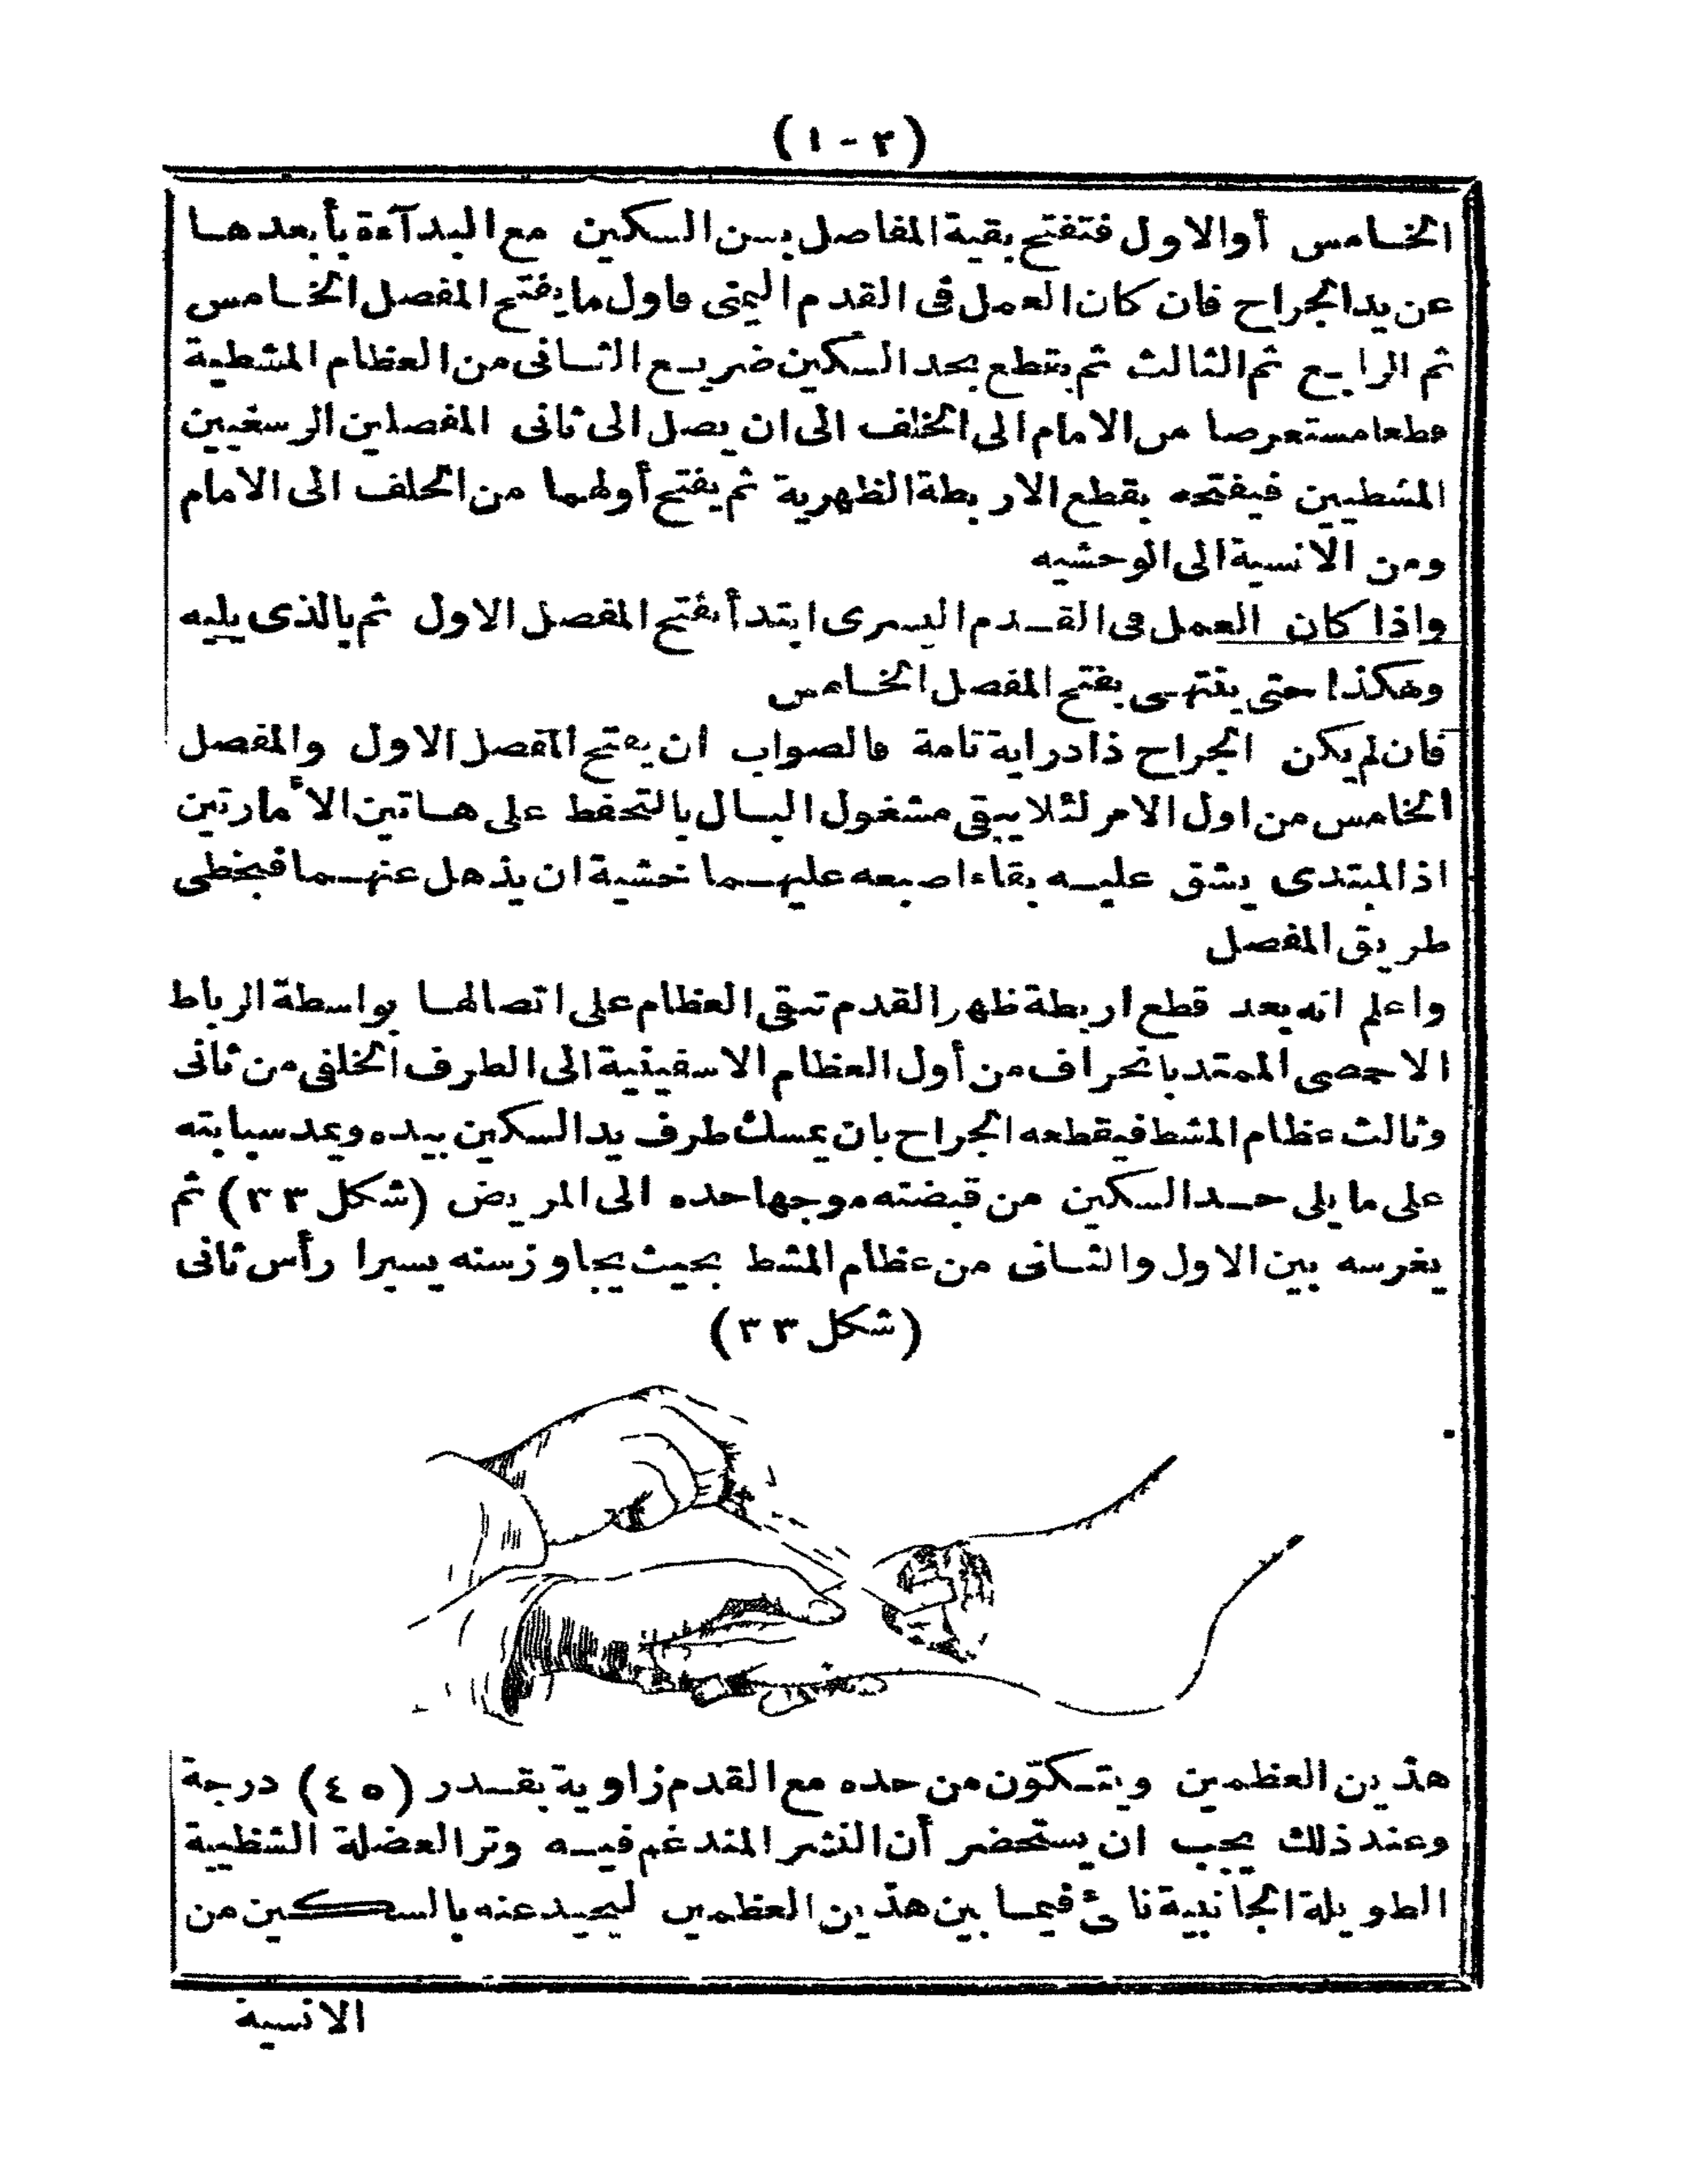 (١٠٢)
الخامس أوالاول فتفتح بقية المفاصل بسن السكين مع البدآءة بأبعدها
عن يد الجراح فان كان العمل فى القدم اليمنى فاول ما يفتح المفصل الخامس
ثم الرابع ثم الثالث ثم يقطع بحد السكين ضريع الثانى من العظام المشطية
قطعا مستعرضا من الامام الى الخلف الى ان يصل الى ثانى المفصلين الرسغيين
المشطيين فيفتحه بقطع الاربطة الظهرية ثم يفتح أولهما من الخلف الى الامام
ومن الانسية الى الوحشيه
واذا كان العمل فى القدم اليسرى ابتدأ بفتح المفصل الاول ثم بالذى يليه
وهكذا حتى ينتهى بفتح المفصل الخامس
فان لم يكن الجراح ذا دراية تامة فالصواب ان يفتح المفصل الاول والمفصل
الخامس من اول الامر لئلا يبقى مشغول البال بالتحفظ على هاتين الأمارتين
اذ المبتدى يشق عليه بقاء اصبعه عليهما خشية ان يذهل عنهما فيخطى
طريق المفصل
واعلم انه بعد قطع اربطة ظهر القدم تبقى العظام على اتصالها بواسطة الرباط
الاخمصى الممتد بانحراف من أول العظام الاسفينية الى الطرف الخلفى من ثانى
وثالث عظام المشط فيقطعه الجراح بان يمسك طرف يد السكين بيده ويمد سبابته
على ما يلى حد السكين من قبضته موجها حده الى المريض (شكل ٣٣) ثم
يغرسه بين الاول والثانى من عظام المشط بحيث يجاوز سنه يسيرا رأس ثانى
(شكل ٣٣)
هذين العظمين ويتكوّن من حده مع القدم زاوية بقدر (٤٥) درجة
وعند ذلك يجب ان يستحضر أن النشر المندغم فيه وتر العضلة الشظيية
الطويلة الجانبية ناتئ فيما بين هذين العظمين ليحيد عنه بالسكين من
الانسية